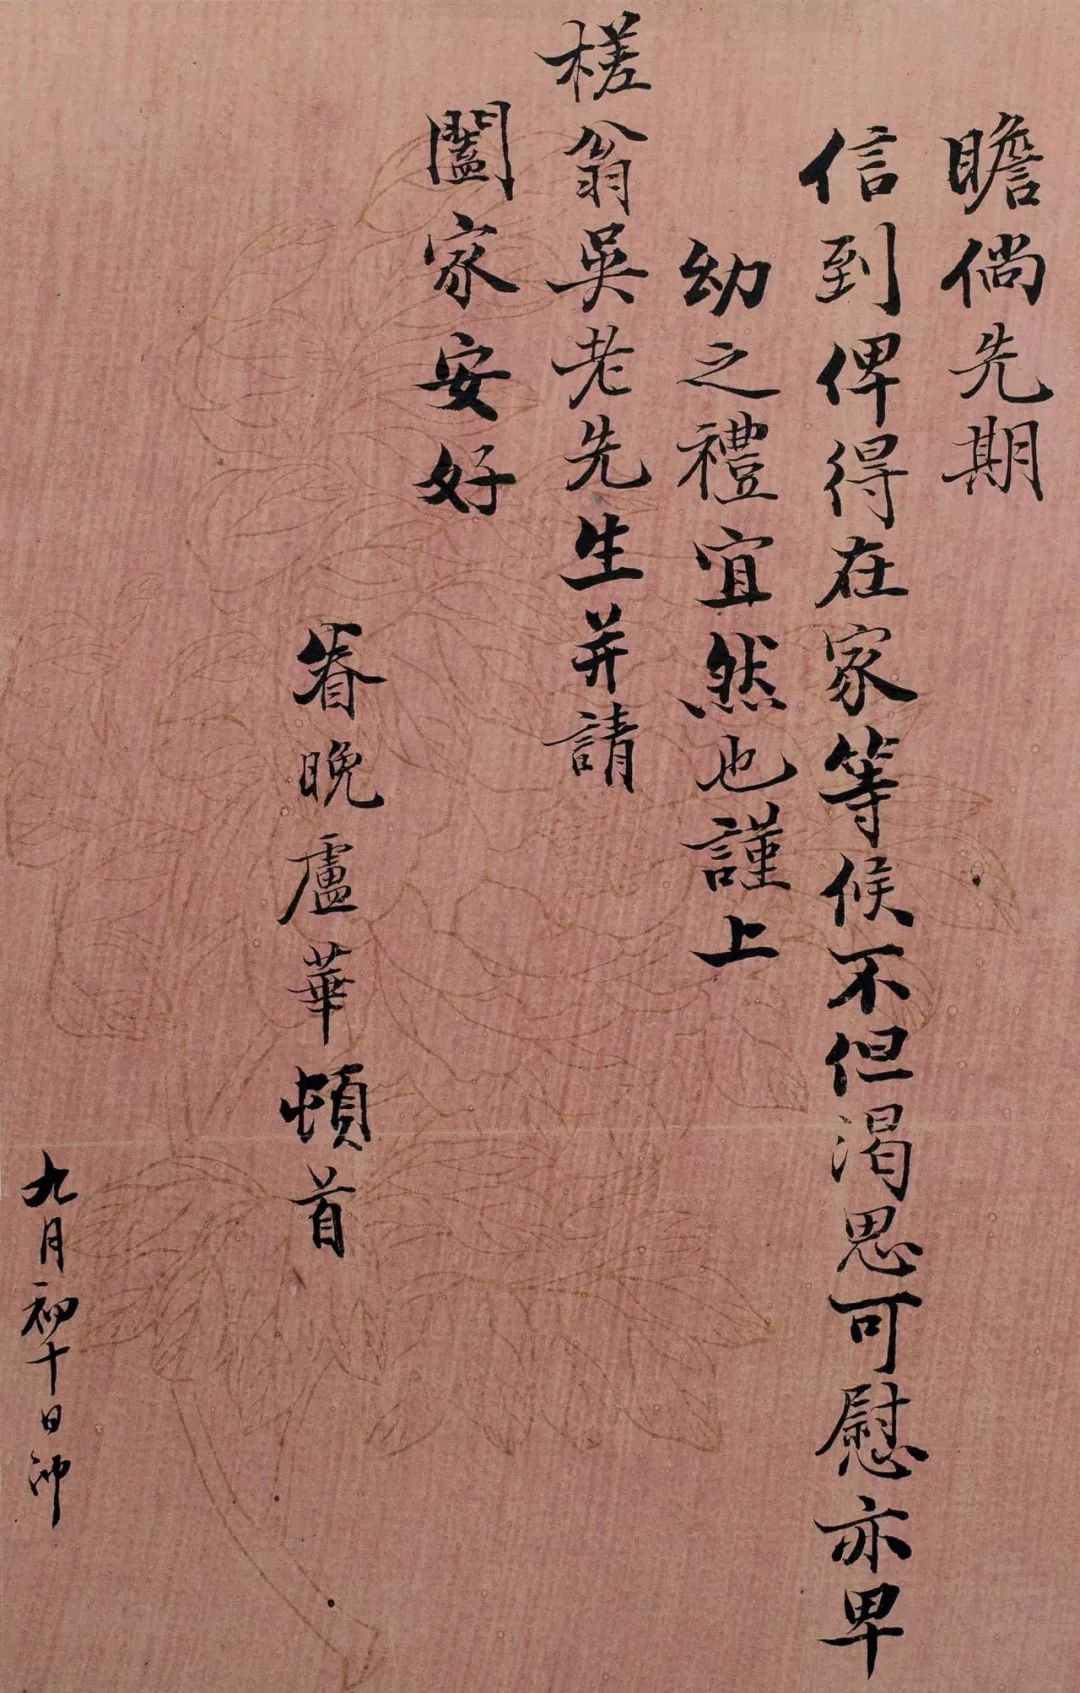 瞻倘先期
信到俾得在家等候不但渴思可慰亦卑
幼之禮宜然也謹上
槎翁吳老先生并請
闔家安好
眷晚盧華頓首
九月初十日沖